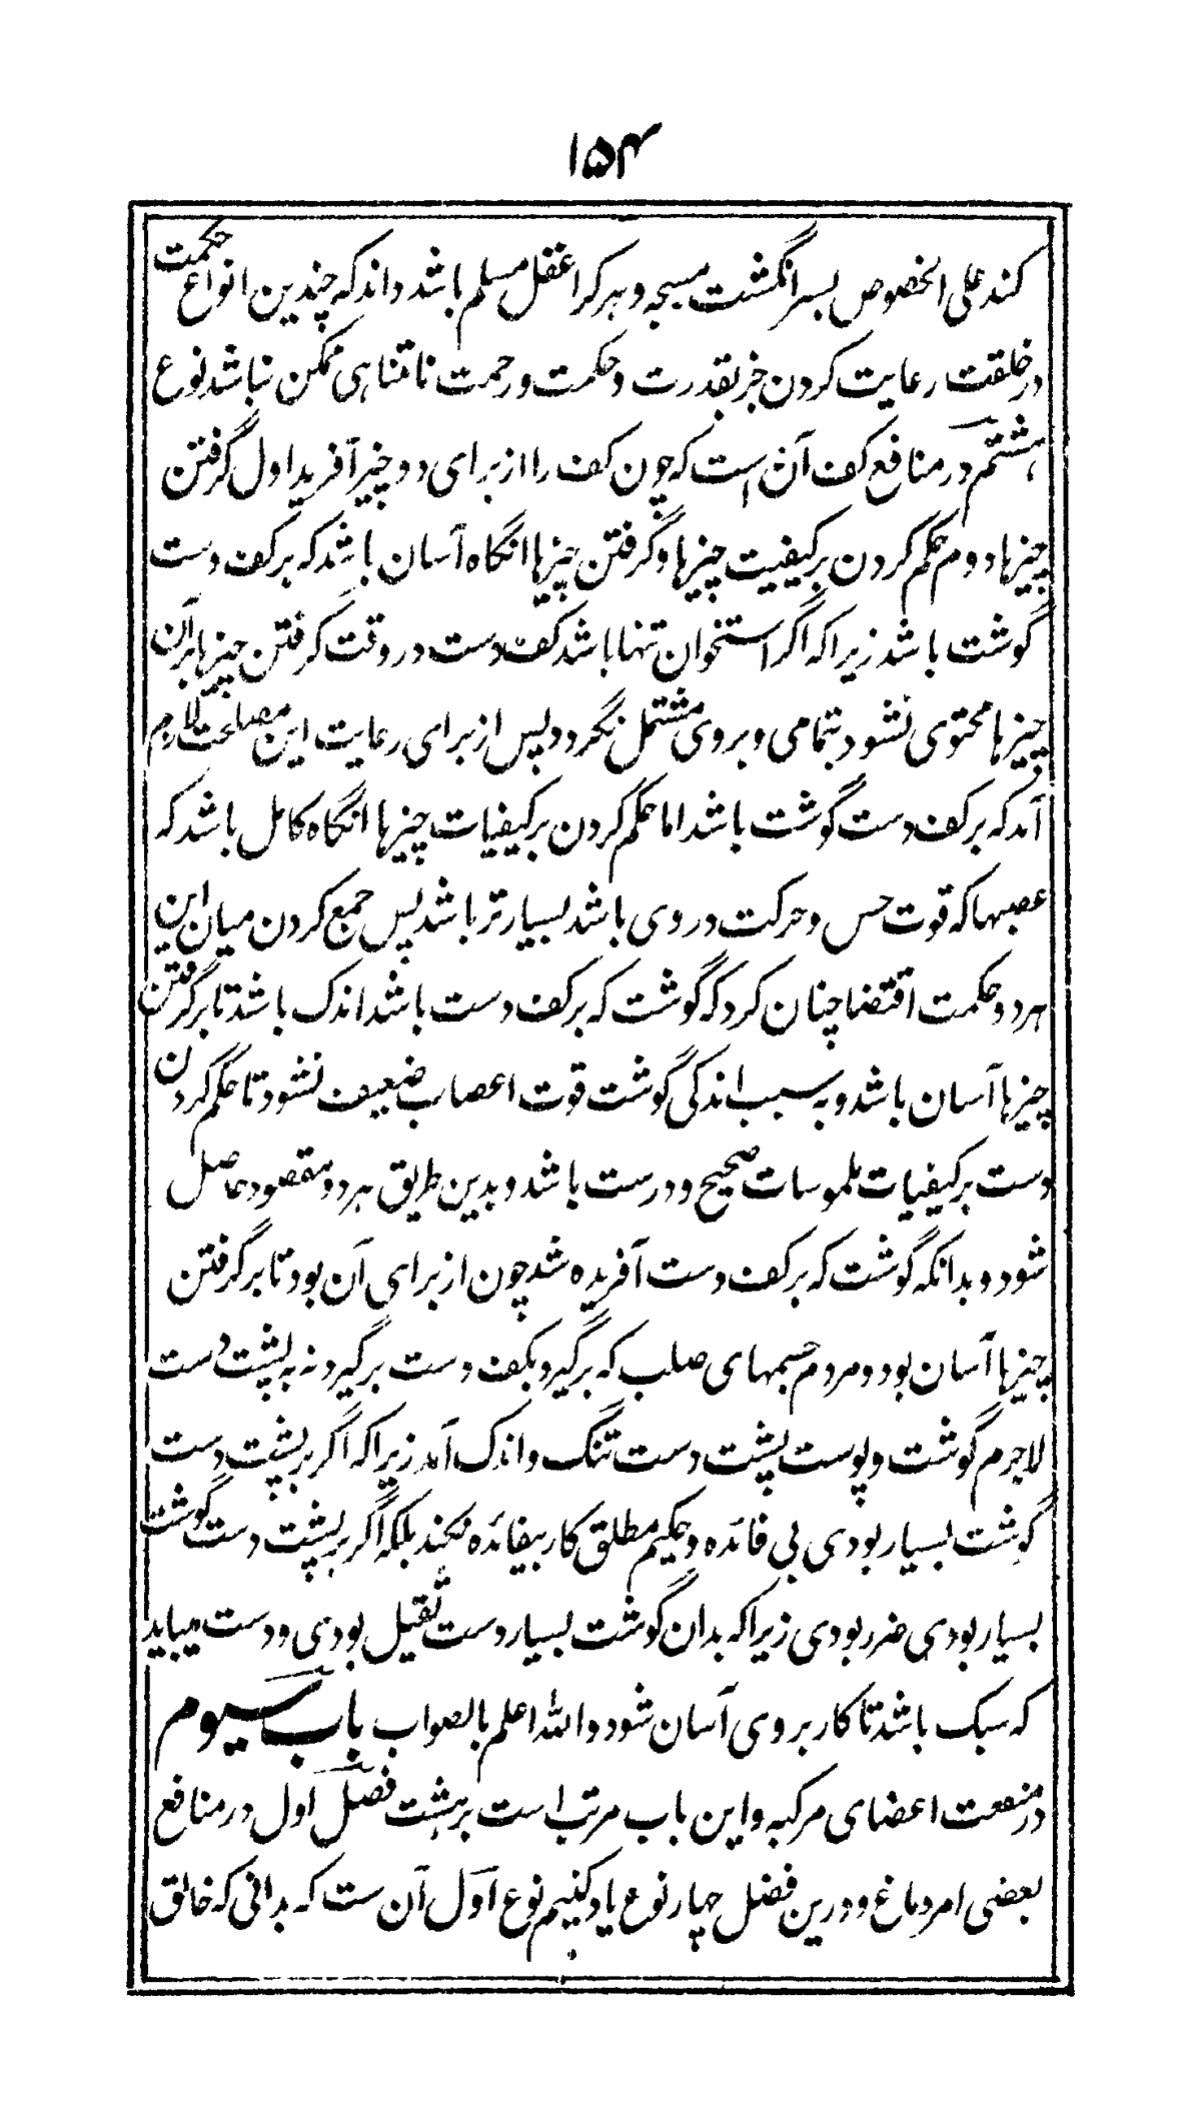 ۱۵۴
کند علی الخصوص بسر انگشت مسبحه و هر کرا عقل مسلم باشد داند که چندین انواع حکمت
در خلقت رعایت کردن جز بقدرت و حکمت و رحمت نامتناهی ممکن نباشد نوع
هشتم در منافع کف آن است که چون کف را از برای دو چیز آفرید اول گرفتن
چیزها دوم حکم کردن بر کیفیت چیزها و گرفتن چیزها انگاه آسان باشد که بر کف دست
گوشت باشد زیرا که اگر استخوان تنها باشد کف دست در وقت گرفتن چیزها بر آن
چیزها محتوی نشود بتمامی و بر وی مشتمل نگردد پس از برای رعایت این مصلحت لازم
آمد که بر کف دست گوشت باشد اما حکم کردن بر کیفیات چیزها انگاه کامل باشد که
عصبها که قوت حس و حرکت در وی باشد بسیارتر باشد پس جمع کردن میان این
هر دو حکمت اقتضا چنان کرد که گوشت که بر کف دست باشد اندک باشد تا برگرفتن
چیزها آسان باشد و به سبب اندکی گوشت قوت اعصاب ضعیف نشود تا حکم کردن
دست بر کیفیات ملموسات صحیح و درست باشد و بدین طریق هر دو مقصود حاصل
شود و بدانکه گوشت که بر کف دست آفریده شد چون از برای آن بود تا برگرفتن
چیزها آسان بود و مردم جسمهای صلب که برگیرد بکف دست برگیرد نه به پشت دست
لاجرم گوشت و پوست پشت دست تنگ و اندک آمد زیرا که اگر بر پشت دست
گوشت بسیار بودی بی فائده و حکیم مطلق کار بیفائده نکند بلکه اگر بر پشت دست گوشت
بسیار بودی ضرر بودی زیرا که بدان گوشت بسیار دست ثقیل بودی و دست میباید
که سبک باشد تا کار بر وی آسان شود والله اعلم بالصواب باب سیوم
در منفعت اعضای مرکبه و این باب مرتب است بر هشت فصل اول در منافع
بعضی امر دماغ و درین فصل چهار نوع یاد کنیم نوع اول آن ست که بدانی که خالق